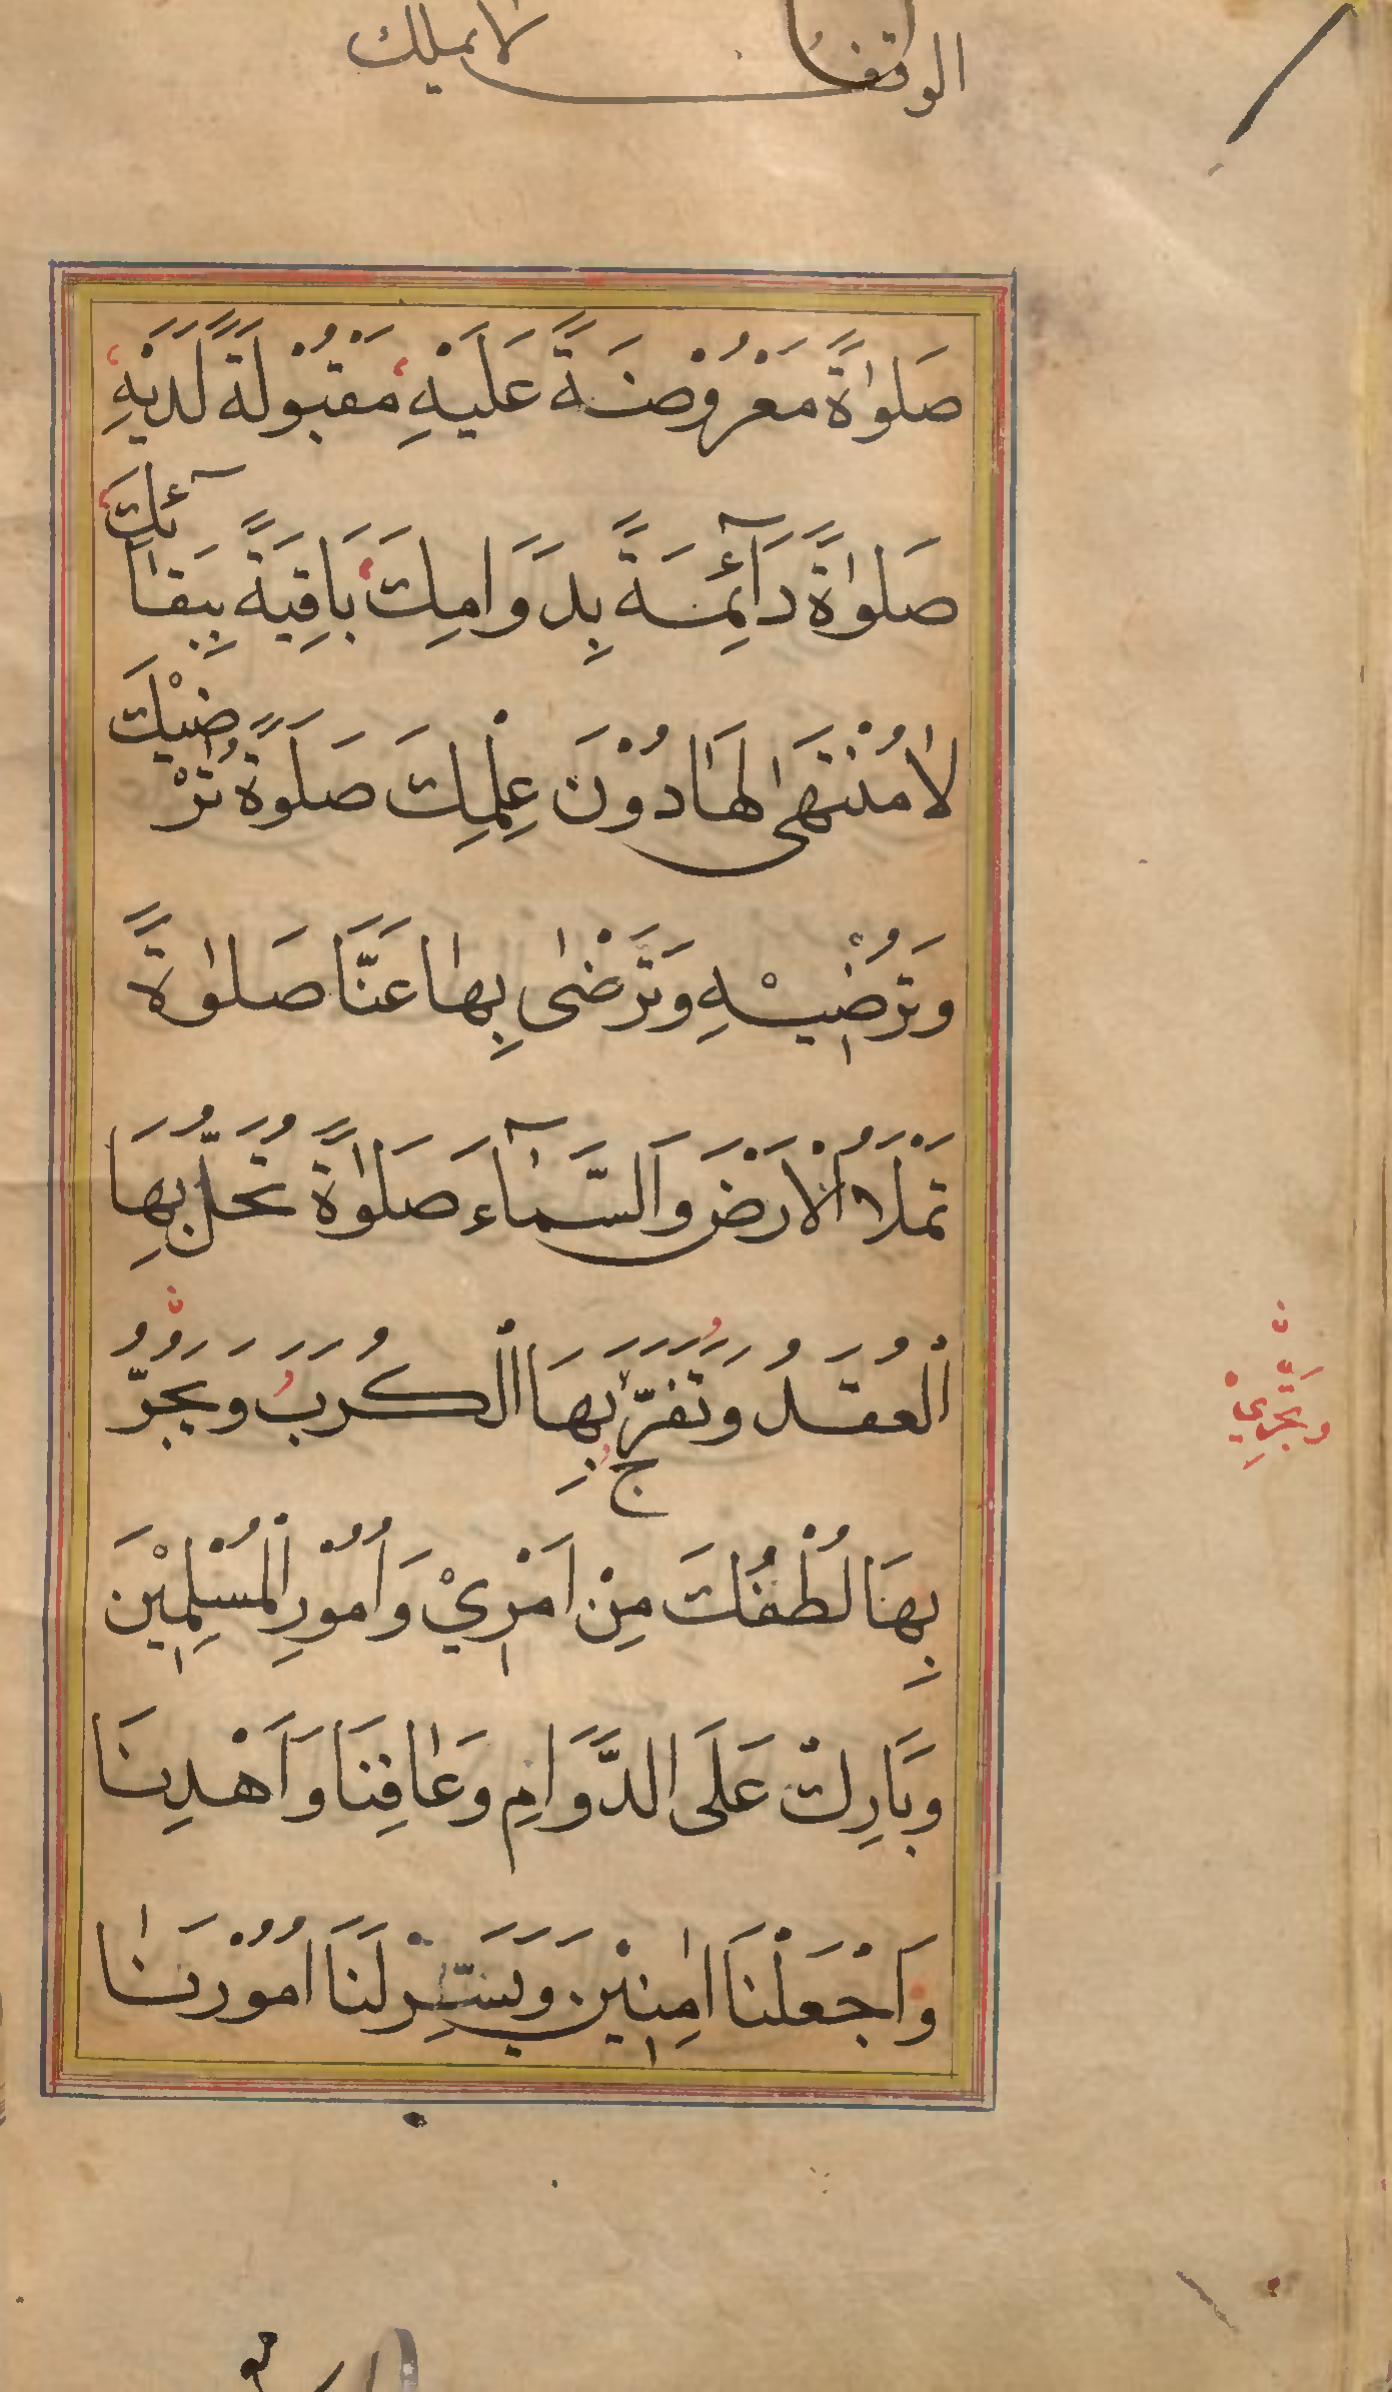 الوقف لا يملك
صَلوٰاةً مَعْرُوْضَةً عَلَيْهِ مَقْبُوْلَةً لَدَيْهِ
صَلوٰاةً دَآئِمَةً بِدَوَامِكَ بَاقِيَةً بِبَقَآئِكَ
لاٰ مُنْتَهَىٰ لَهَا دُوْنَ عِلْمِكَ صَلَوةً تُرْضِيْكَ
وَتُرْضِيْهِ وَتَرْضٰى بِهٰا عَنَّا صَلوٰةً
تَمْلَاُ الْاَرْضَ وَالسَّمٰآءَ صَلَوٰاةً تَحُلُّ بِهَا
الْعُقَدُ وَتُفَرَّجُ بِهَا الْكُرَبُ وَيَجُرُّ
وَتَجْرِيْ
بِهَا لُطْفُكَ مِنْ اَمْرِيْ وَاُمُوْرِ الْمُسْلِمِيْنَ
وَبَارِكْ عَلَى الدَّوَامِ وَعٰافِنَا وَاَهْدِنَا
وَاَجْعَلْنَا اٰمِنِيْنَ وَيَسِّرْ لَنَا اُمُوْرَنٰا